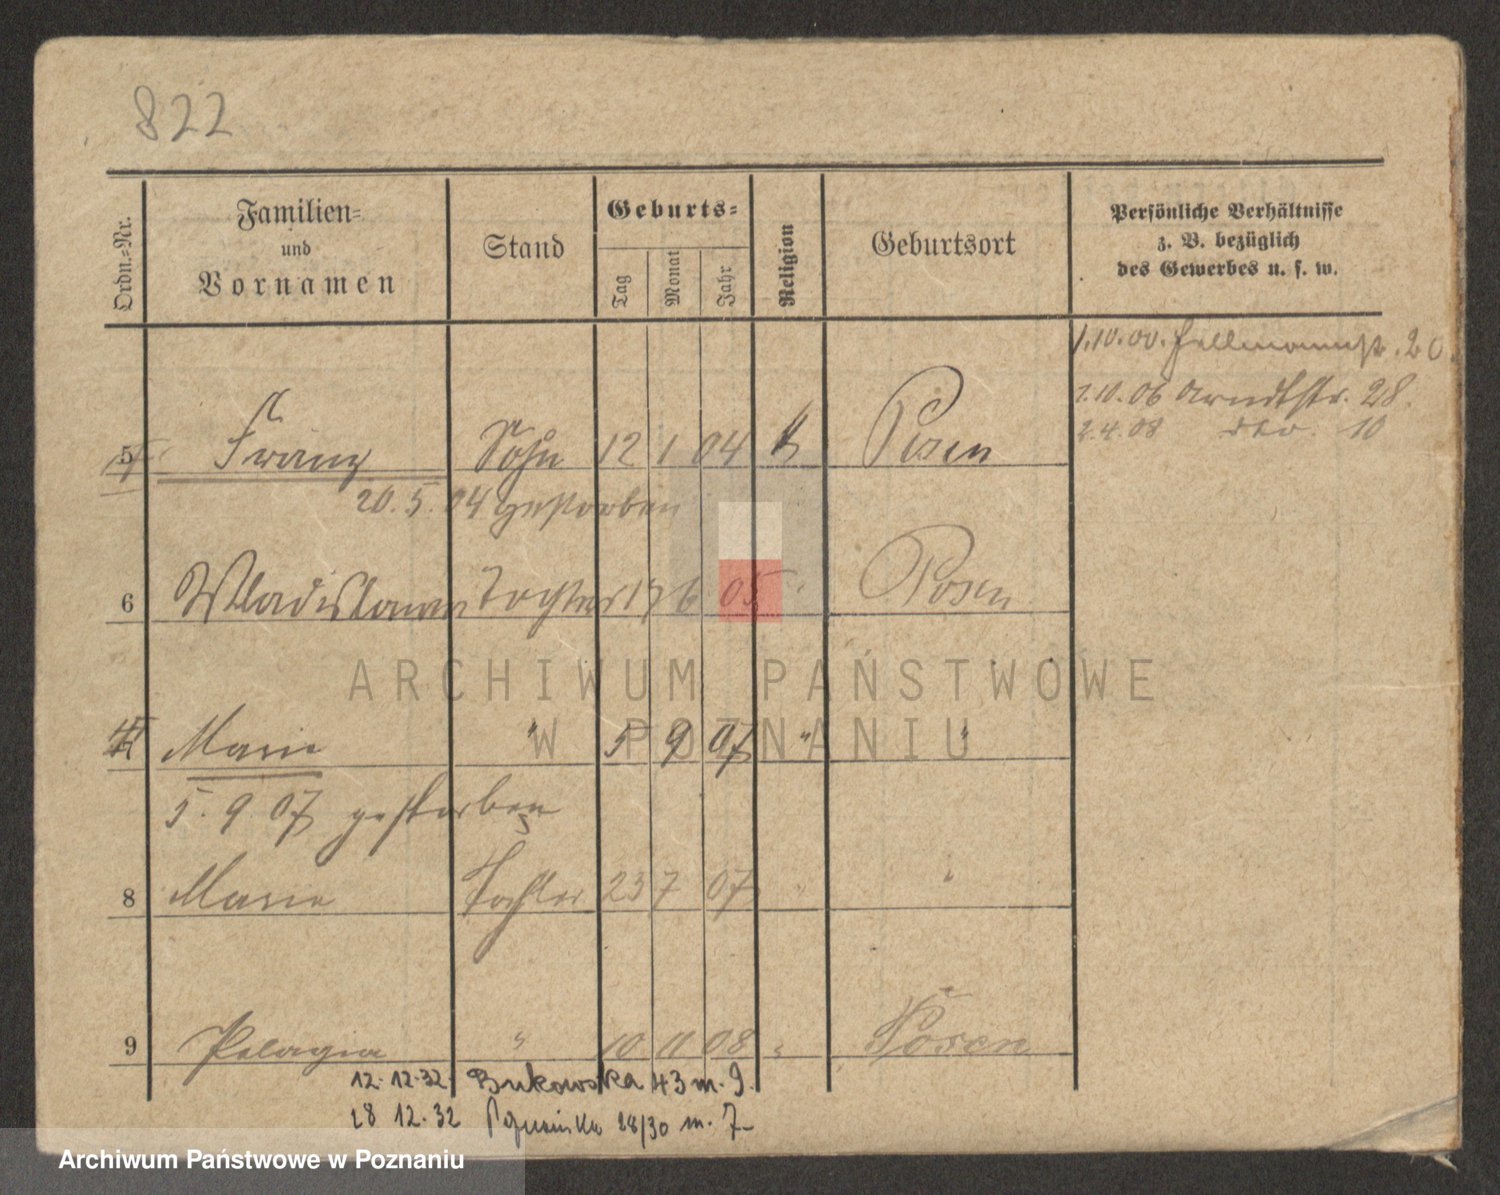 822
Ordn.-Nr.
Familien-
und
Vornamen
Stand
Geburts-
Tag
Monat
Jahr
Religion
Geburtsort
Persönliche Verhältnisse
z. B. bezüglich
des Gewerbes u. s. w.
1.10.00. Hellmannstr. 20
1.10.06 Arndtstr. 28.
2.4.08 dto. 10
5 Franz Sohn 12 1 04 k Posen
20. 5. 04 gestorben
6 Wladislawa Tochter 17 6 05 " Posen
ARCHIWUM PAŃSTWOWE
W POZNANIU
Marie " 5 9 07 " "
5. 9 07 gestorben
8 Marie Tochter 23 7 07 " "
9 Pelagia " 10 11 08 " Posen
12. 12.32. Bukowska 43 m. 9.
28 12.32 28/30 m. 7
Archiwum Państwowe w Poznaniu